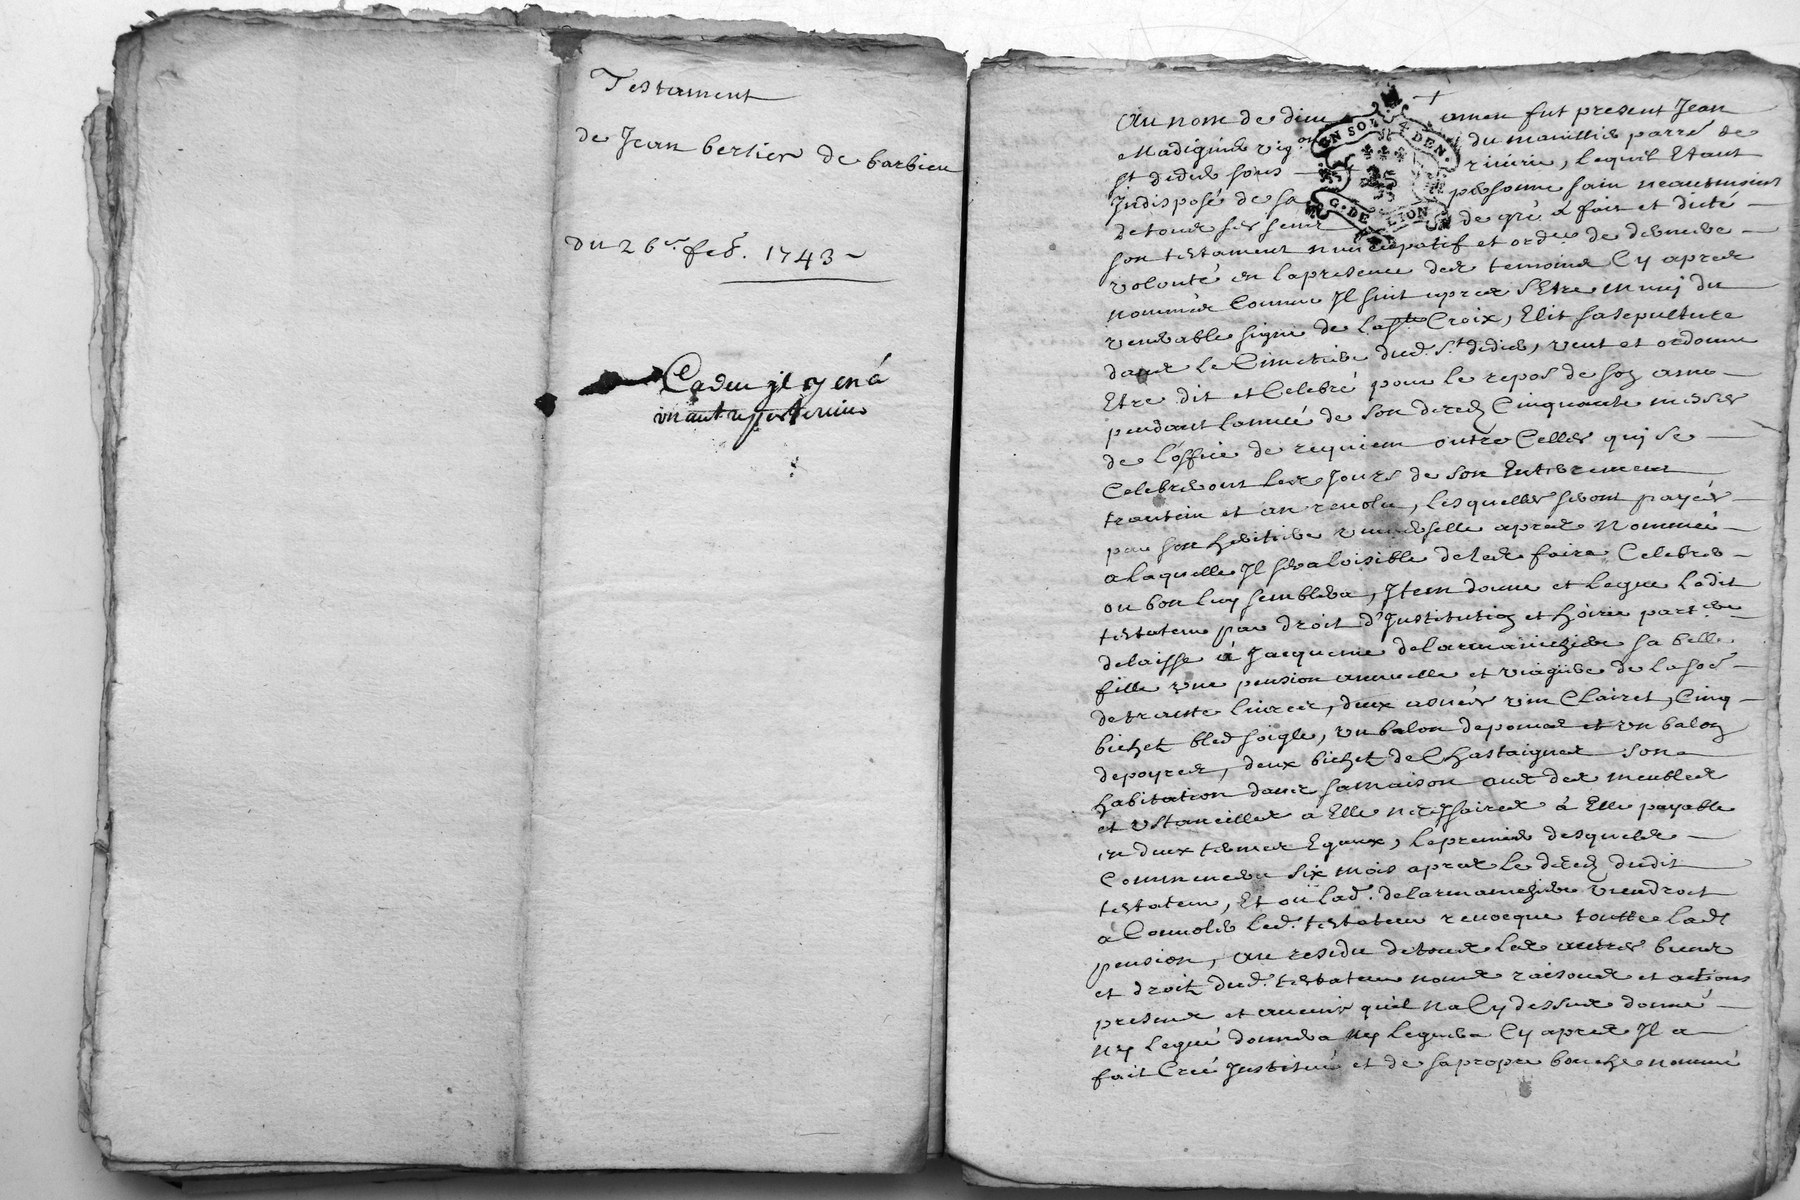 Testament
de Jean bertier de barbieu
du 26e. feb. 1743
Caduc jl y en á
un autre posterieur
EN SOL 4 DEN.
G. DE LION
Au nom de dieu amen fut present Jean
Madiginier vig.on du parré de
st didier sous riverie, lequel Etant
Jndisposé de sa personne sain neantmoins
de tous ses sens de gré á fait et dicté
son testament nuncupatif et ord.re de derniere
volonté en la presence des temoins Cy apres
nommés Comme Jl suit apres s'Etre muny du
venerable signe de la s.te Croix, Elit sa sepulture
dans le Cimetiere dud. s.t didier, veut et ordonne
Etre dit et Celebré pour le repos de son ame
pendant l'année de son deces Cinquante messes
de l'office de requiem outre Celles qui se
Celebreront les Jours de son Enterrement
trantein et an revolu, lesquelles seront payées
par son heritiere universelle apres Nommée
a laquelle Jl sera loisible de les faire Celebrer
ou bon luy semblera, Jtem donne et legue ledit
testateur par droit d'Jnstitution et hoirie part.re
delaisse á Jacqueme delarmanichere sa belle
fille une pension annuelle et viagere de la so.e
de trante livres, deux asnées vin Clairet, Cinq
bichets bled soigle, un balon de pomes et un balon
de poyres, deux bichets de Chastaignes son
habitation dans sa maison avec des meubles
et Ustancilles a Elle necessaires á Elle payable
en deux termes Egaux, le premier desquels
Commencera six mois apres le deces dudit
testateur, Et ou lad. delarmanichere viendroit
a Convoler led. testateur revocque toutte lad.e
pension, au residu de tous les autres biens
et droits dud. testateur noms raisons et actions
presents et avenir quil na Cy dessus donné
Ny legué donnera Ny leguera Cy apres Jl a
fait Creé Jnstitué et de sa propre bouche nommé